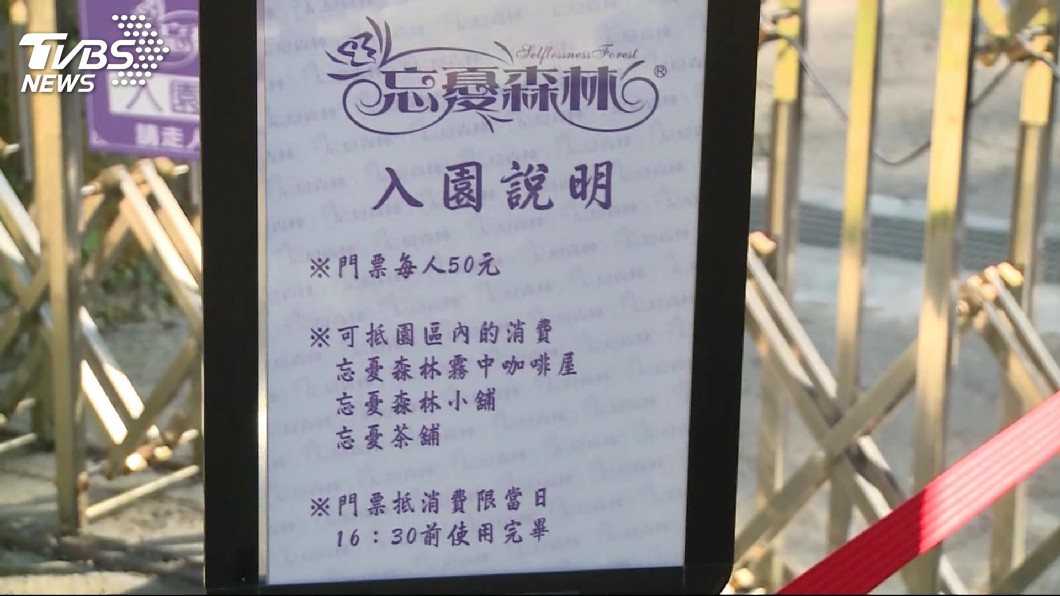 TVBS
NEWS
入園
請走
Selflessness Forest
忘憂森林®
入園說明
※門票每人50元
※可抵園區內的消費
忘憂森林霧中咖啡屋
忘憂森林小舖
忘憂茶舖
※門票抵消費限當日
16：30前使用完畢